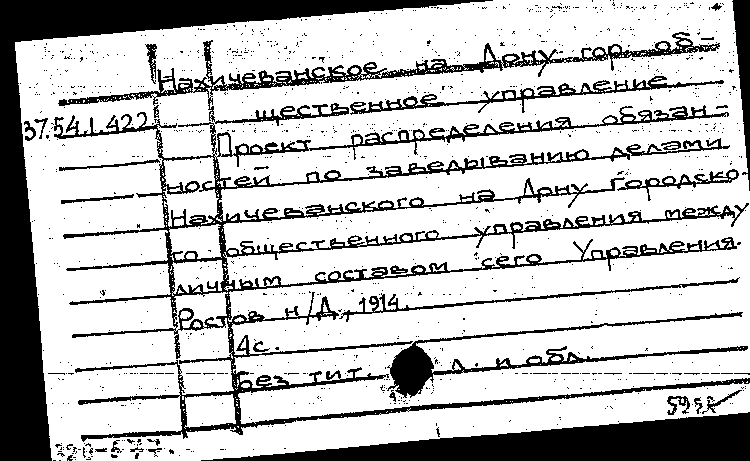 Нахичеванское на Дону гор. об-
щественное управление.
37.54.1.422
Проект распределения обязан-
ностей по заведыванию делами
Нахичеванского на Дону Городско-
го общественного управления между
личным составом сего Управления.
Ростов н/Д., 1914.
4с.
Без тит. л. и обл.